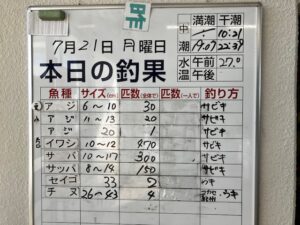 昨
7月21日 月曜日
中 満潮 干潮
潮 : 10:21
19:07 22:39
水温 午前 27.0
午後
本日の釣果
魚種 サイズ(cm) 匹数(全体で) 匹数(一人で) 釣り方
アジ 6~10 30 サビキ
アジ 11~13 20 サビキ
アジ 20 1 サビキ
イワシ 10~12 470 サビキ
サバ 10~17 300 サビキ
サッパ 8~14 150 サビキ
セイゴ 33 2 ウキ
チヌ 26~43 4 ウキ